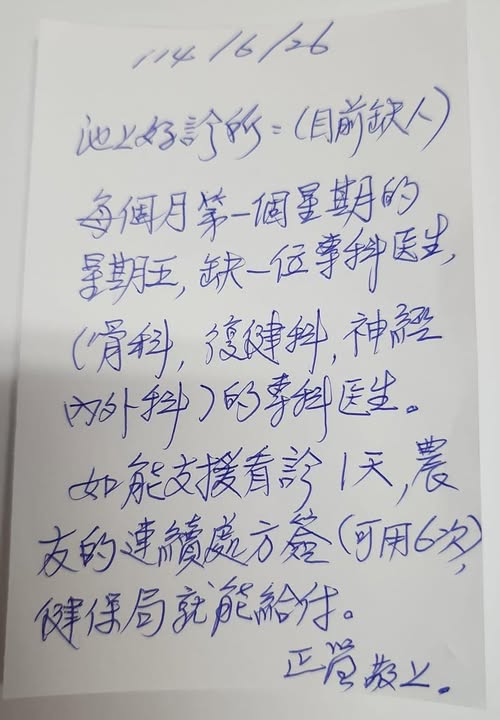 114/6/26
池上好診所=(目前缺人)
每個月第一個星期的
星期五,缺一位專科医生,
(骨科,復健科,神經
內外科)的專科医生。
如能支援看診1天,農
友的連續處方簽(可用6次),
健保局就能給付。
正營敬上。